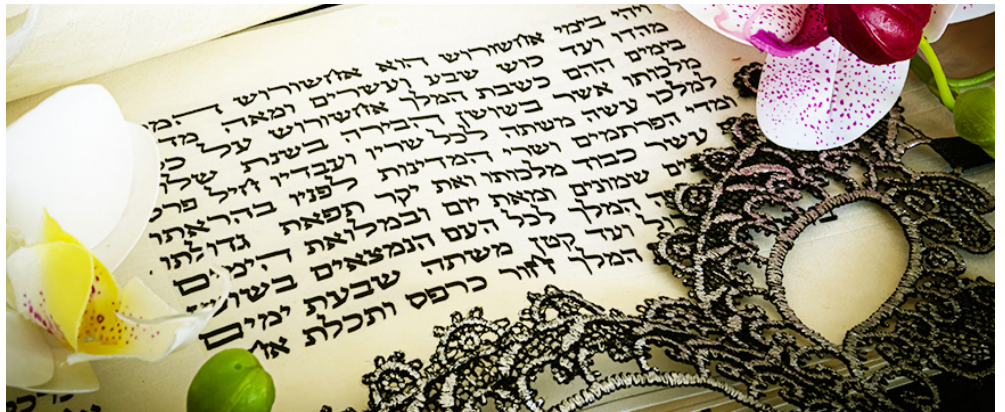 ויהי בימי אחשורוש הוא אחשורוש המ
מהדו ועד כוש שבע ועשרים ומאה מד
בימים ההם כשבת המלך אחשורוש על כ
מלכותו אשר בשושן הבירה בשנת שלו
למלכו עשה משתה לכל שריו ועבדיו חיל פרס
ומדי הפרתמים ושרי המדינות לפניו בהראתו
עשר כבוד מלכותו ואת יקר תפאת גדולתו
ים שמונים ומאת יום ובמלואת הימים
ה המלך לכל העם הנמצאים בשוש
ל ועד קטן משתה שבעת ימים
המלך חור כרפס ותכלת אח